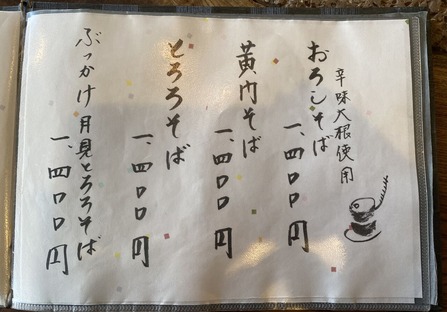 辛味大根使用
おろしそば
一、四〇〇円
黄内そば
一、四〇〇円
とろろそば
一、四〇〇円
ぶっかけ月見とろろそば
一、四〇〇円